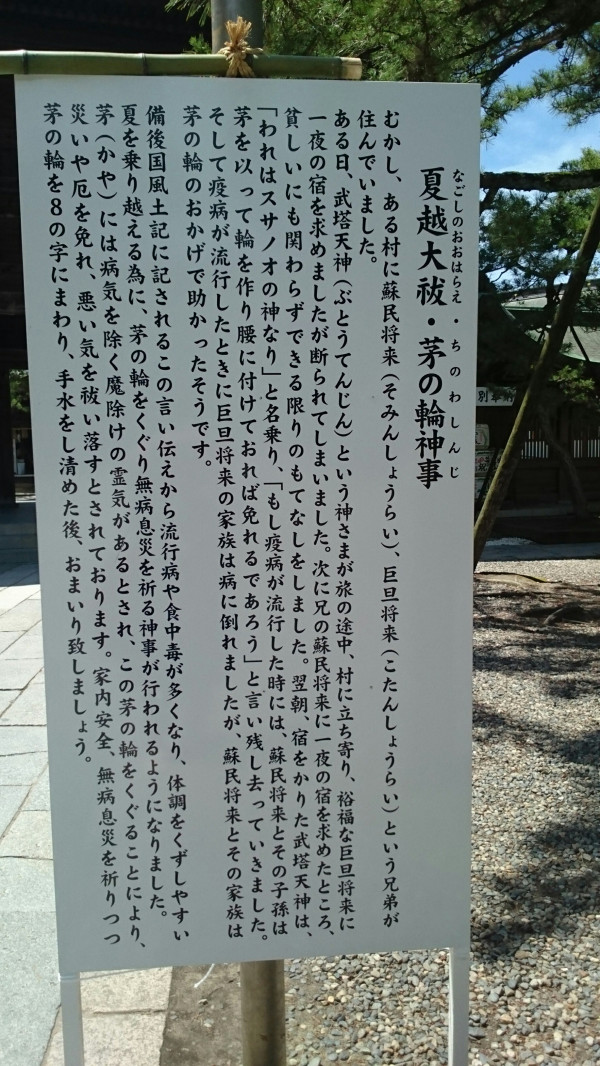 なごしのおおはらえ・ちのわしんじ
夏越大祓・茅の輪神事
むかし、ある村に蘇民将来(そみんしょうらい)、巨旦将来(こたんしょうらい)という兄弟が
住んでいました。
ある日、武塔天神(ぶとうてんじん)という神さまが旅の途中、村に立ち寄り、裕福な巨旦将来に
一夜の宿を求めましたが断られてしまいました。次に兄の蘇民将来に一夜の宿を求めたところ、
貧しいにも関わらずできる限りのもてなしをしました。翌朝、宿をかりた武塔天神は、
「われはスサノオの神なり」と名乗り、「もし疫病が流行した時には、蘇民将来とその子孫は
茅を以って輪を作り腰に付けておれば免れるであろう」と言い残し去っていきました。
そして疫病が流行したときに巨旦将来の家族は病に倒れましたが、蘇民将来とその家族は
茅の輪のおかげで助かったそうです。
備後国風土記に記されるこの言い伝えから流行病や食中毒が多くなり、体調をくずしやすい
夏を乗り越える為に、茅の輪をくぐり無病息災を祈る神事が行われるようになりました。
茅(かや)には病気を除く魔除けの霊気があるとされ、この茅の輪をくぐることにより、
災いや厄を免れ、悪い気を祓い落すとされております。家内安全、無病息災を祈りつつ
茅の輪を8の字にまわり、手水をし清めた後、おまいり致しましょう。